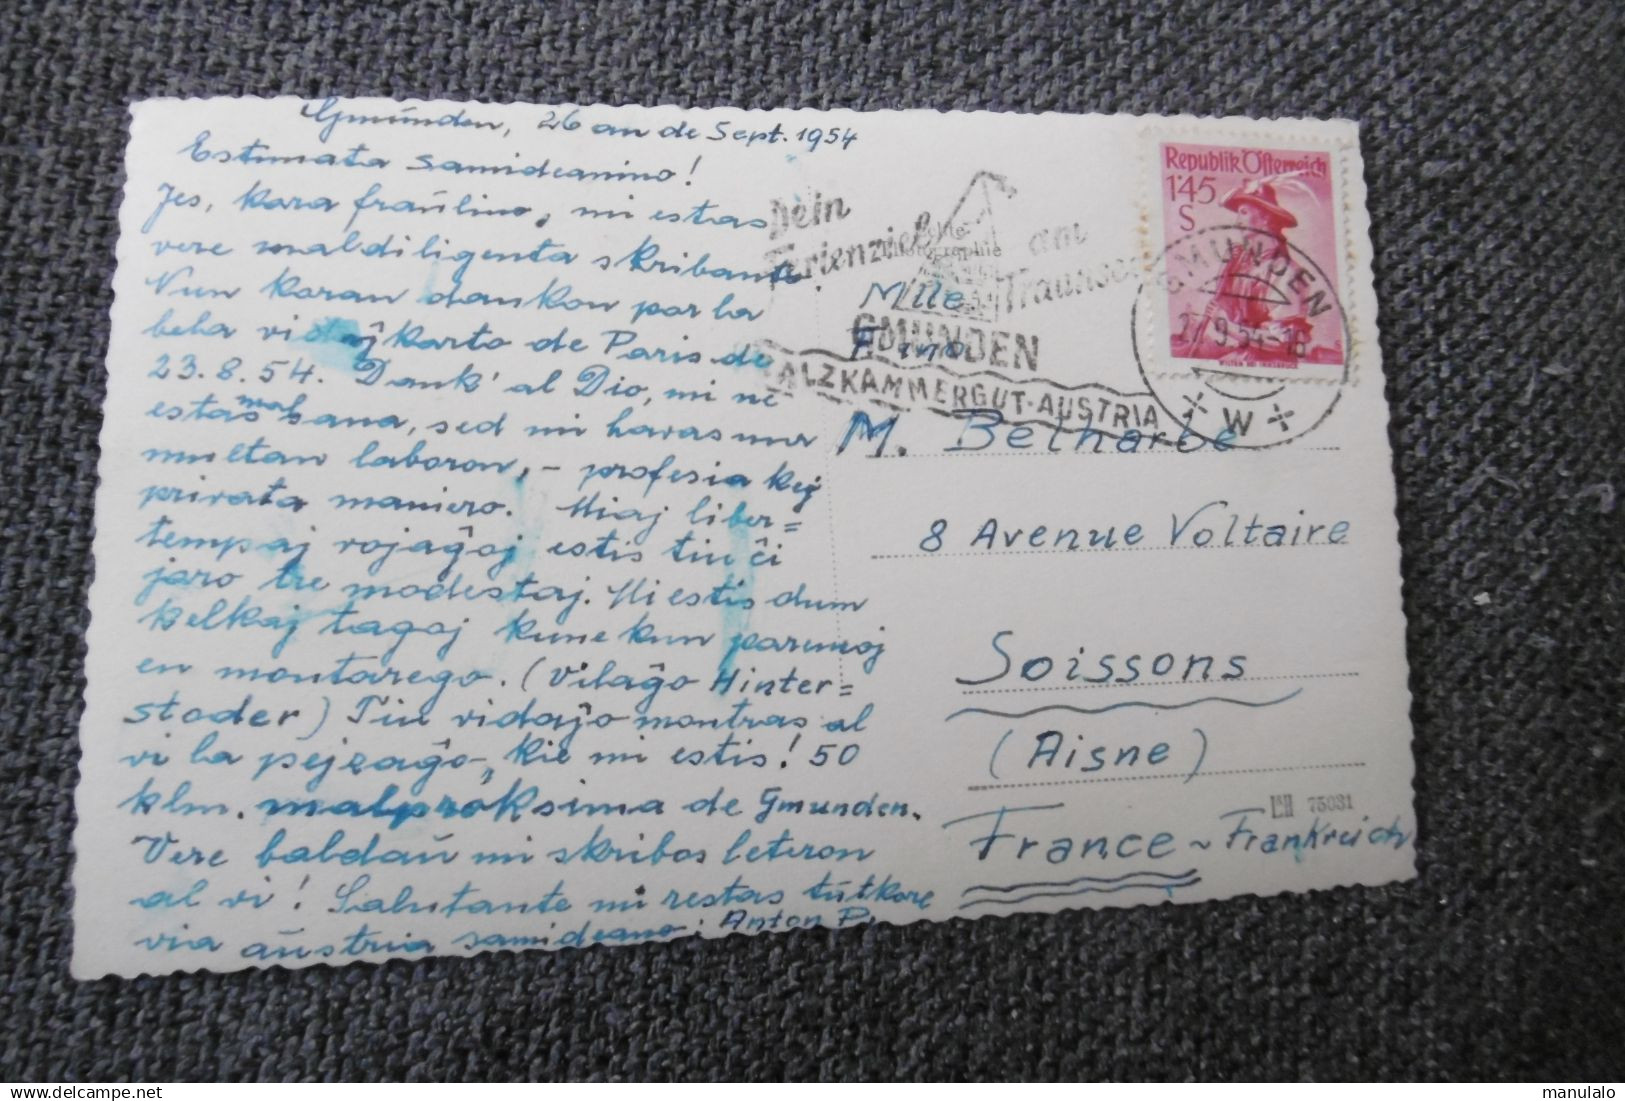 Gmünden, 26 an de Sept. 1954
Estimata samideanino!
Jes, kara fraŭlino, mi estas
vere maldiligenta skribanto.
Nun koran dankon por la
bela vidaĵkarto de Paris de
23.8.54. Dank' al Dio, mi ne
estas malsana, sed mi havas nur
multan laboron, - profesia kej
privata maniero. Miaj liber=
tempaj vojaĝoj estis tiu ĉi
jaro tre modestaj. Mi estis dum
kelkaj tagoj kune kun parencoj
en montarego. (Vilaĝo Hinter=
stoder) Tiu vidaĵo montras al
vi la pejzaĝo, kie mi estis! 50
klm. malproksima de Gmunden.
Vere baldaŭ mi skribos leteron
al vi! Salutante mi restas tutkore
via aŭstria samideano: Anton
Dein
Ferienziel
am
Traunsee
GMUNDEN
SALZKAMMERGUT-AUSTRIA
Echte
Photographie
Republik Österreich
1'45
S
GMUNDEN
27.9.54-18
W
Mlle
M. Belharbe
8 Avenue Voltaire
Soissons
(Aisne)
75031
France ~ Frankreich
www.delcampe.net
manulalo